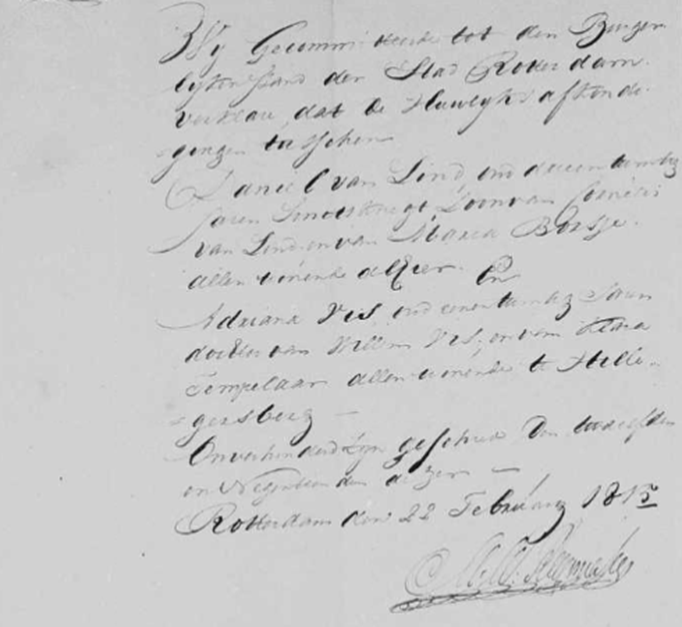 Wij Gecommitteerde tot den Burger
lyken stand der Stad Rotterdam
verklare, dat de Huwelyks afkonde-
gingen tusschen
Daniel van Lind, oud drieentwintig
Jaren Smidsknegt, Zoon van Cornelis
van Lind en van Maria
allen wonende alhier. En
Adriana Vis oud eenentwintig Jaren
dochter van Willem Vis, en van Klara
Tempelaar allen wonende te Hille-
gersberg
Onverhinderd zyn geschied Den twaalfden
en Negentienden dezer
Rotterdam den 22 Februarij 1815